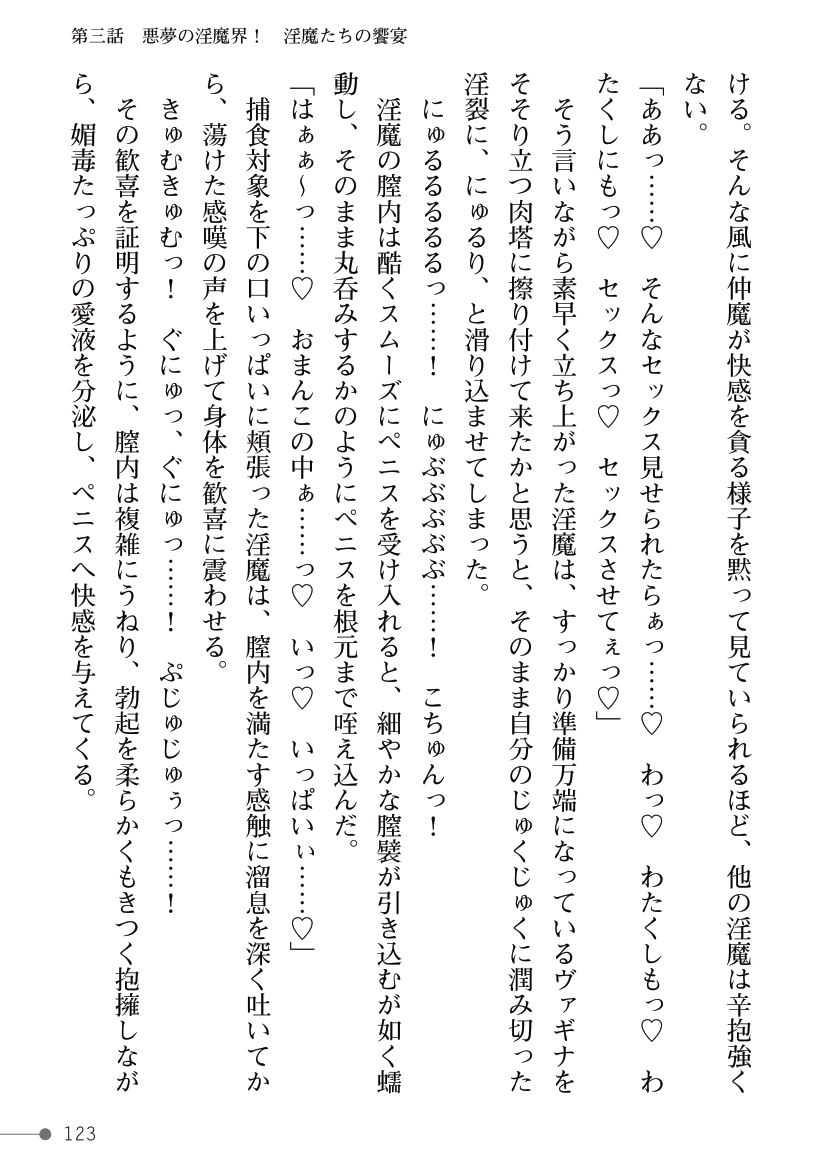 第三話　悪夢の淫魔界！　淫魔たちの饗宴
ける。そんな風に仲魔が快感を貪る様子を黙って見ていられるほど、他の淫魔は辛抱強く
ない。
「ああっ……♡　そんなセックス見せられたらぁっ……♡　わっ♡　わたくしもっ♡　わ
たくしにもっ♡　セックスっ♡　セックスさせてぇっ♡」
　そう言いながら素早く立ち上がった淫魔は、すっかり準備万端になっているヴァギナを
そそり立つ肉塔に擦り付けて来たかと思うと、そのまま自分のじゅくじゅくに潤み切った
淫裂に、にゅるり、と滑り込ませてしまった。
　にゅるるるるるっ……！　にゅぶぶぶぶぶ……！　こちゅんっ！
　淫魔の膣内は酷くスムーズにペニスを受け入れると、細やかな膣襞が引き込むが如く蠕
動し、そのまま丸呑みするかのようにペニスを根元まで咥え込んだ。
「はぁぁ～っ……♡　おまんこの中ぁ……っ♡　いっ♡　いっぱいぃ……♡」
　捕食対象を下の口いっぱいに頬張った淫魔は、膣内を満たす感触に溜息を深く吐いてか
ら、蕩けた感嘆の声を上げて身体を歓喜に震わせる。
　きゅむきゅむっ！　ぐにゅっ、ぐにゅっ……！　ぷじゅじゅぅっ……！
　その歓喜を証明するように、膣内は複雑にうねり、勃起を柔らかくもきつく抱擁しなが
ら、媚毒たっぷりの愛液を分泌し、ペニスへ快感を与えてくる。
123